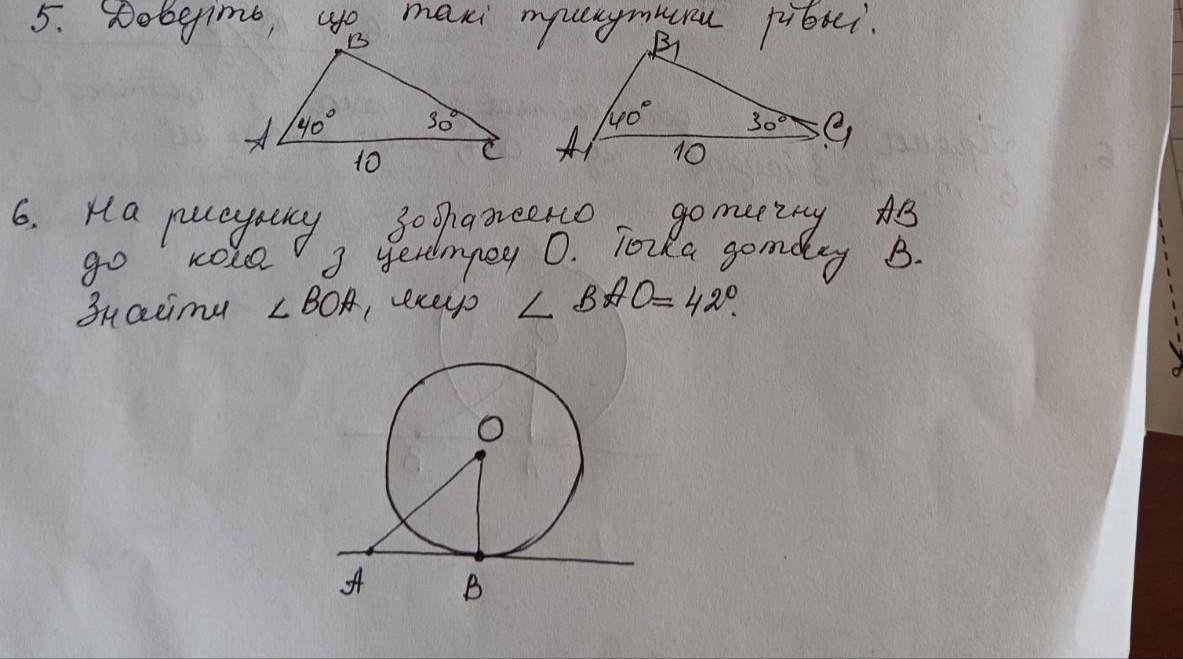 5. Доведіть, що такі трикутники рівні.
B B1
40° 30° 40° 30°
A C A1 C1
10 10
6. На рисунку зображено дотичну AB
до кола з центром O. Точка дотику B.
Знайти ∠BOA, якщо ∠BAO=42°.
O
A B